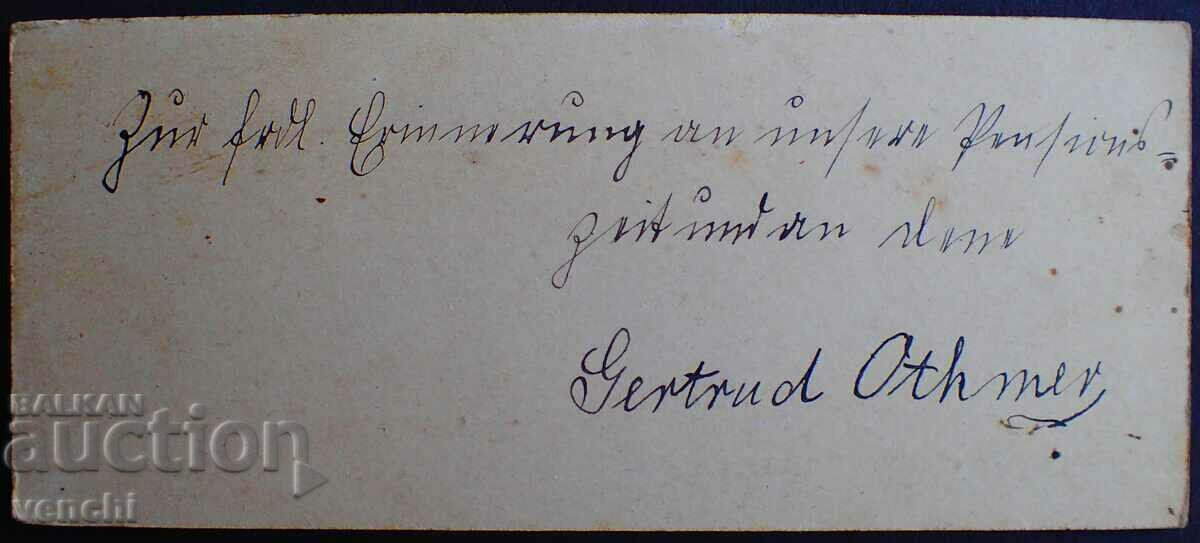 Zur frdl. Erinnerung an unsere Pensions=
zeit und an deine
Gertrud Othmer
BALKAN
auction
venchi